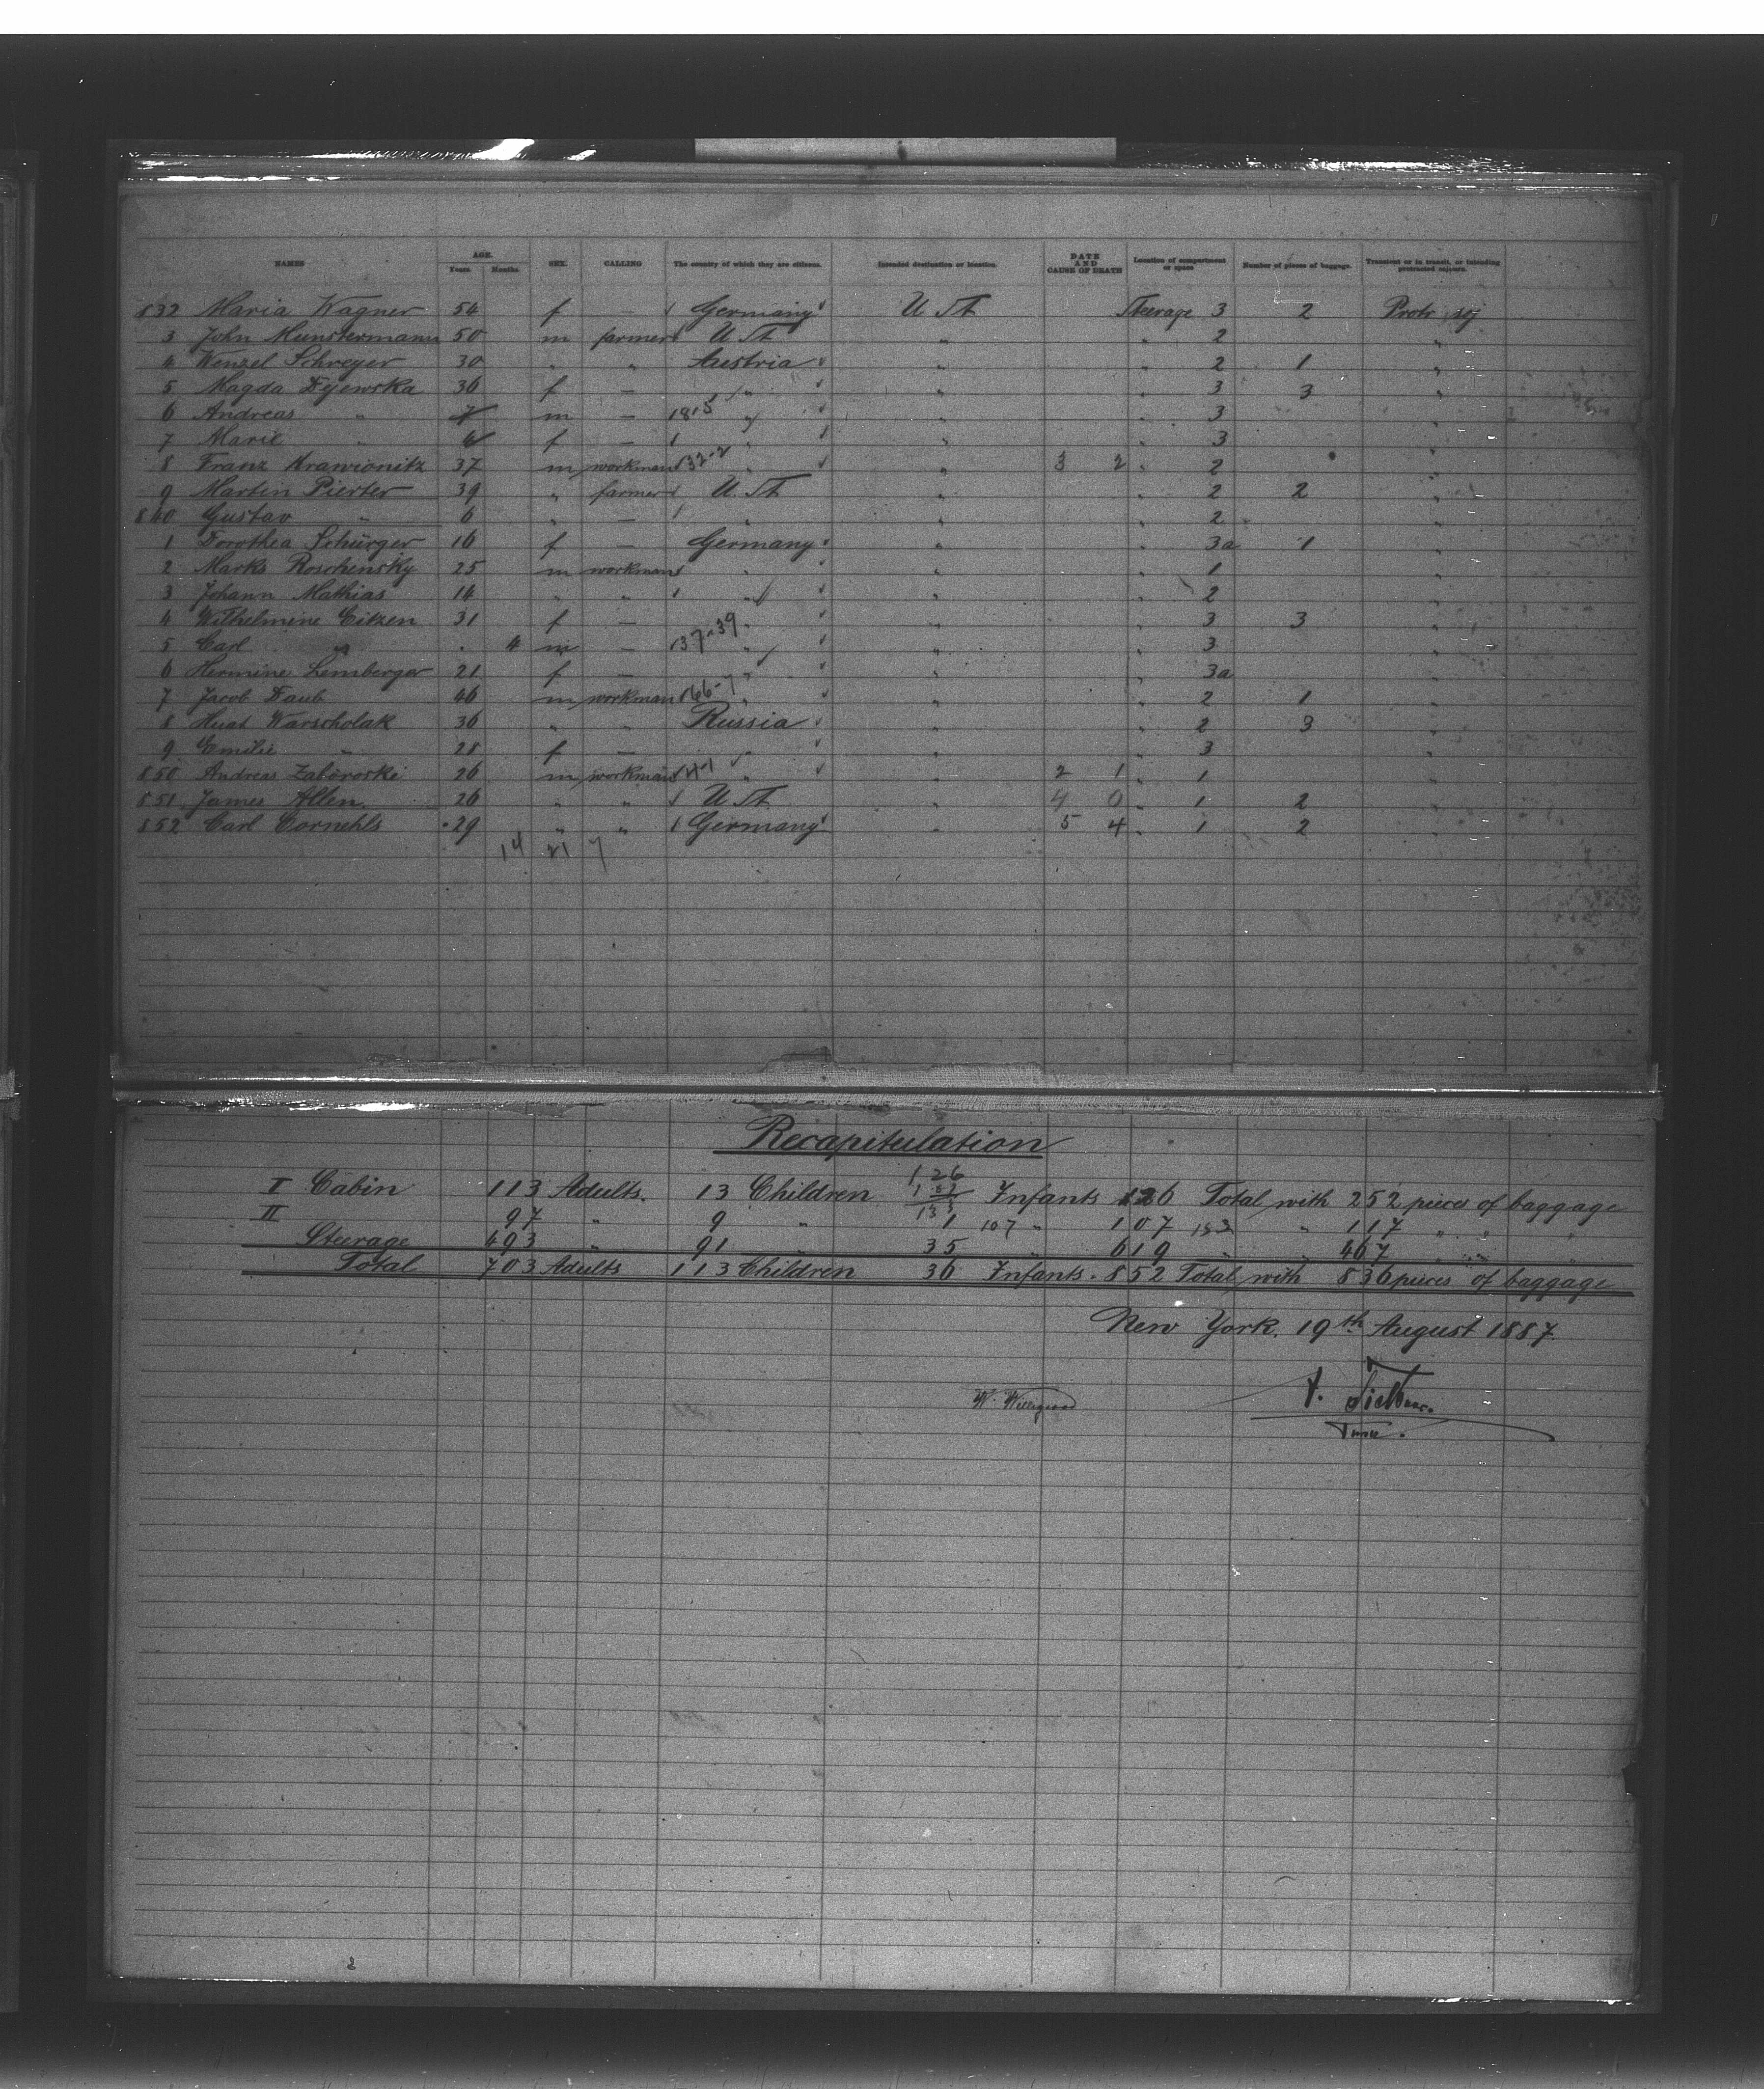 NAMES AGE. Years. Months. SEX. CALLING The country of which they are citizens. Intended destination or location. DATE AND CAUSE OF DEATH Location of compartment or space Number of pieces of baggage. Transient or in transit, or intending protracted sojourn.
832 Maria Wagner 54 f — Germany U St Steerage 3 2 Protr soj
3 John Munstermann 50 m farmer U St " " 2 "
4 Wenzel Schreyer 30 " " Austria " " 2 1 "
5 Magda Dyewska 36 f — " " " 3 3 "
6 Andreas " 7 m — 1815 " " " 3 "
7 Marie " 6 f — " " 3 "
8 Franz 37 m workman 32-2 " " 3 2 " 2
9 Martin Pierter 39 " farmer U. St " " 2 2 "
840 Gustav " 6 " — " " " 2 "
1 Dorothea Schürger 16 f — Germany " " 3a 1 "
2 Marks Roschensky 25 m workman " " " 1 "
3 Johann Mathias 14 " " " " " 2 "
4 Wilhelmine Eitzen 31 f — " " " 3 3 "
5 Carl " 4 m — 137-39 " " " 3 "
6 Hermine Lemberger 21 f — " " " 3a "
7 Jacob Daub 46 m workman 66-7 " " " 2 1 "
8 Warscholak 36 " " Russia " " 2 3 "
9 Emilie " 28 f — " " " 3 "
850 Andreas Zaboroski 26 m workman " " 2 1 " 1 "
851 James Allen 26 " " U St. " 4 0 " 1 2 "
852 Carl Cornehls 29 " " Germany " 5 4 " 1 2 "
14 21 7
Recapitulation
126
I Cabin 113 Adults. 13 Children Infants 126 Total with 252 pieces of baggage
133
II 97 " 9 " 1 107 " 107 " 117 " " "
Steerage 493 " 91 " 35 " 619 " " 467 " " "
Total 703 Adults 113 Children 36 Infants. 852 Total with 836 pieces of baggage
New York. 19th August 1887.